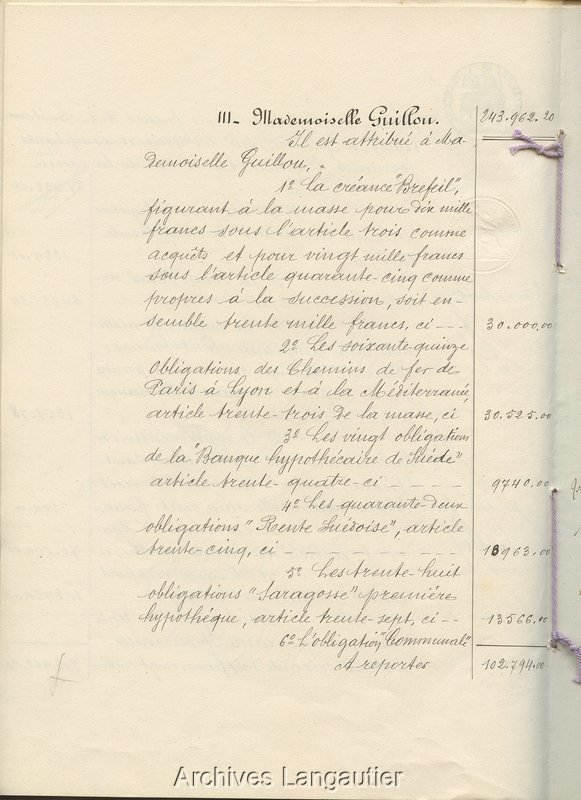 III_ Mademoiselle Guillon. 243.962.20
Il est attribué à Ma-
demoiselle Guillon,
1º La créance "Brefeil",
figurant à la masse pour dix mille
francs sous l'article trois comme
acquêts et pour vingt mille francs
sous l'article quarante-cinq comme
propres à la succession, soit en-
semble trente mille francs, ci --- 30.000.00
2º Les soixante-quinze
obligations des Chemins de fer de
Paris à Lyon et à la Méditerranée,
article trente-trois de la masse, ci 30.525.00
3º Les vingt obligations
de la "Banque hypothécaire de Suède"
article trente-quatre-ci ---- 9740.00
4º Les quarante-deux
obligations "Rente Suédoise", article
trente-cinq, ci - - - - - - - - 18963.00
5º Les trente-huit
obligations "Saragosse" première
hypothèque, article trente-sept, ci -- 13566.00
6º L'obligation "Communale"
A reporter 102.794.00
Archives Langautier